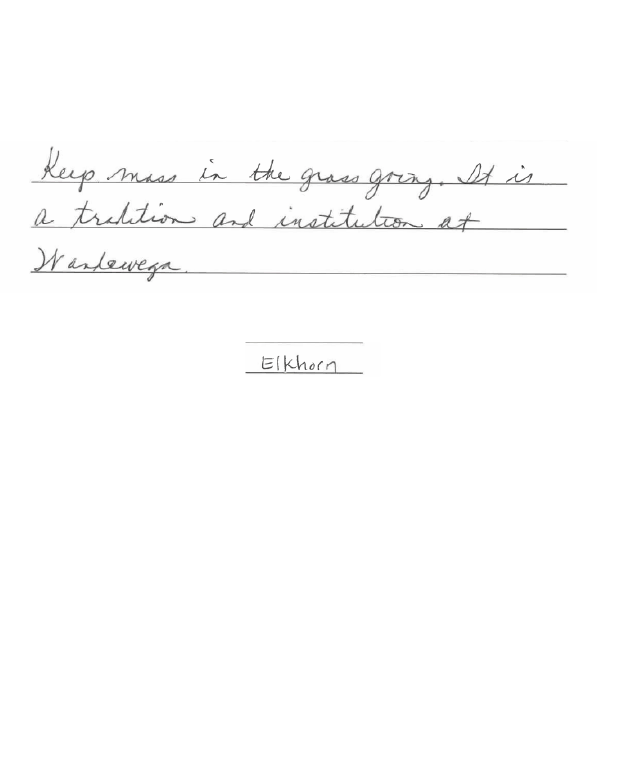 Keep mass in the grass going. It is
a tradition and institution at
Wandawega.
Elkhorn